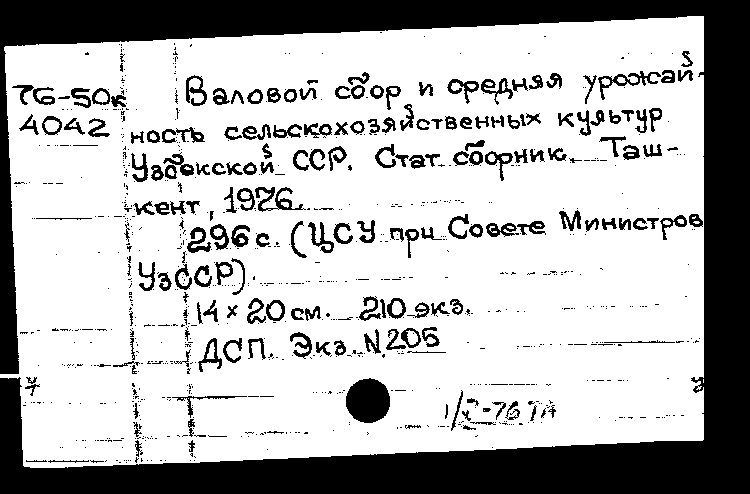 76-50к Валовой сбор и средняя урожай-
4042 ность сельскохозяйственных культур
Узбекской ССР. Стат. сборник. Таш-
кент, 1976.
296 с. (ЦСУ при Совете Министров
УзССР).
14 × 20 см. 210 экз.
ДСП. Экз. N 205